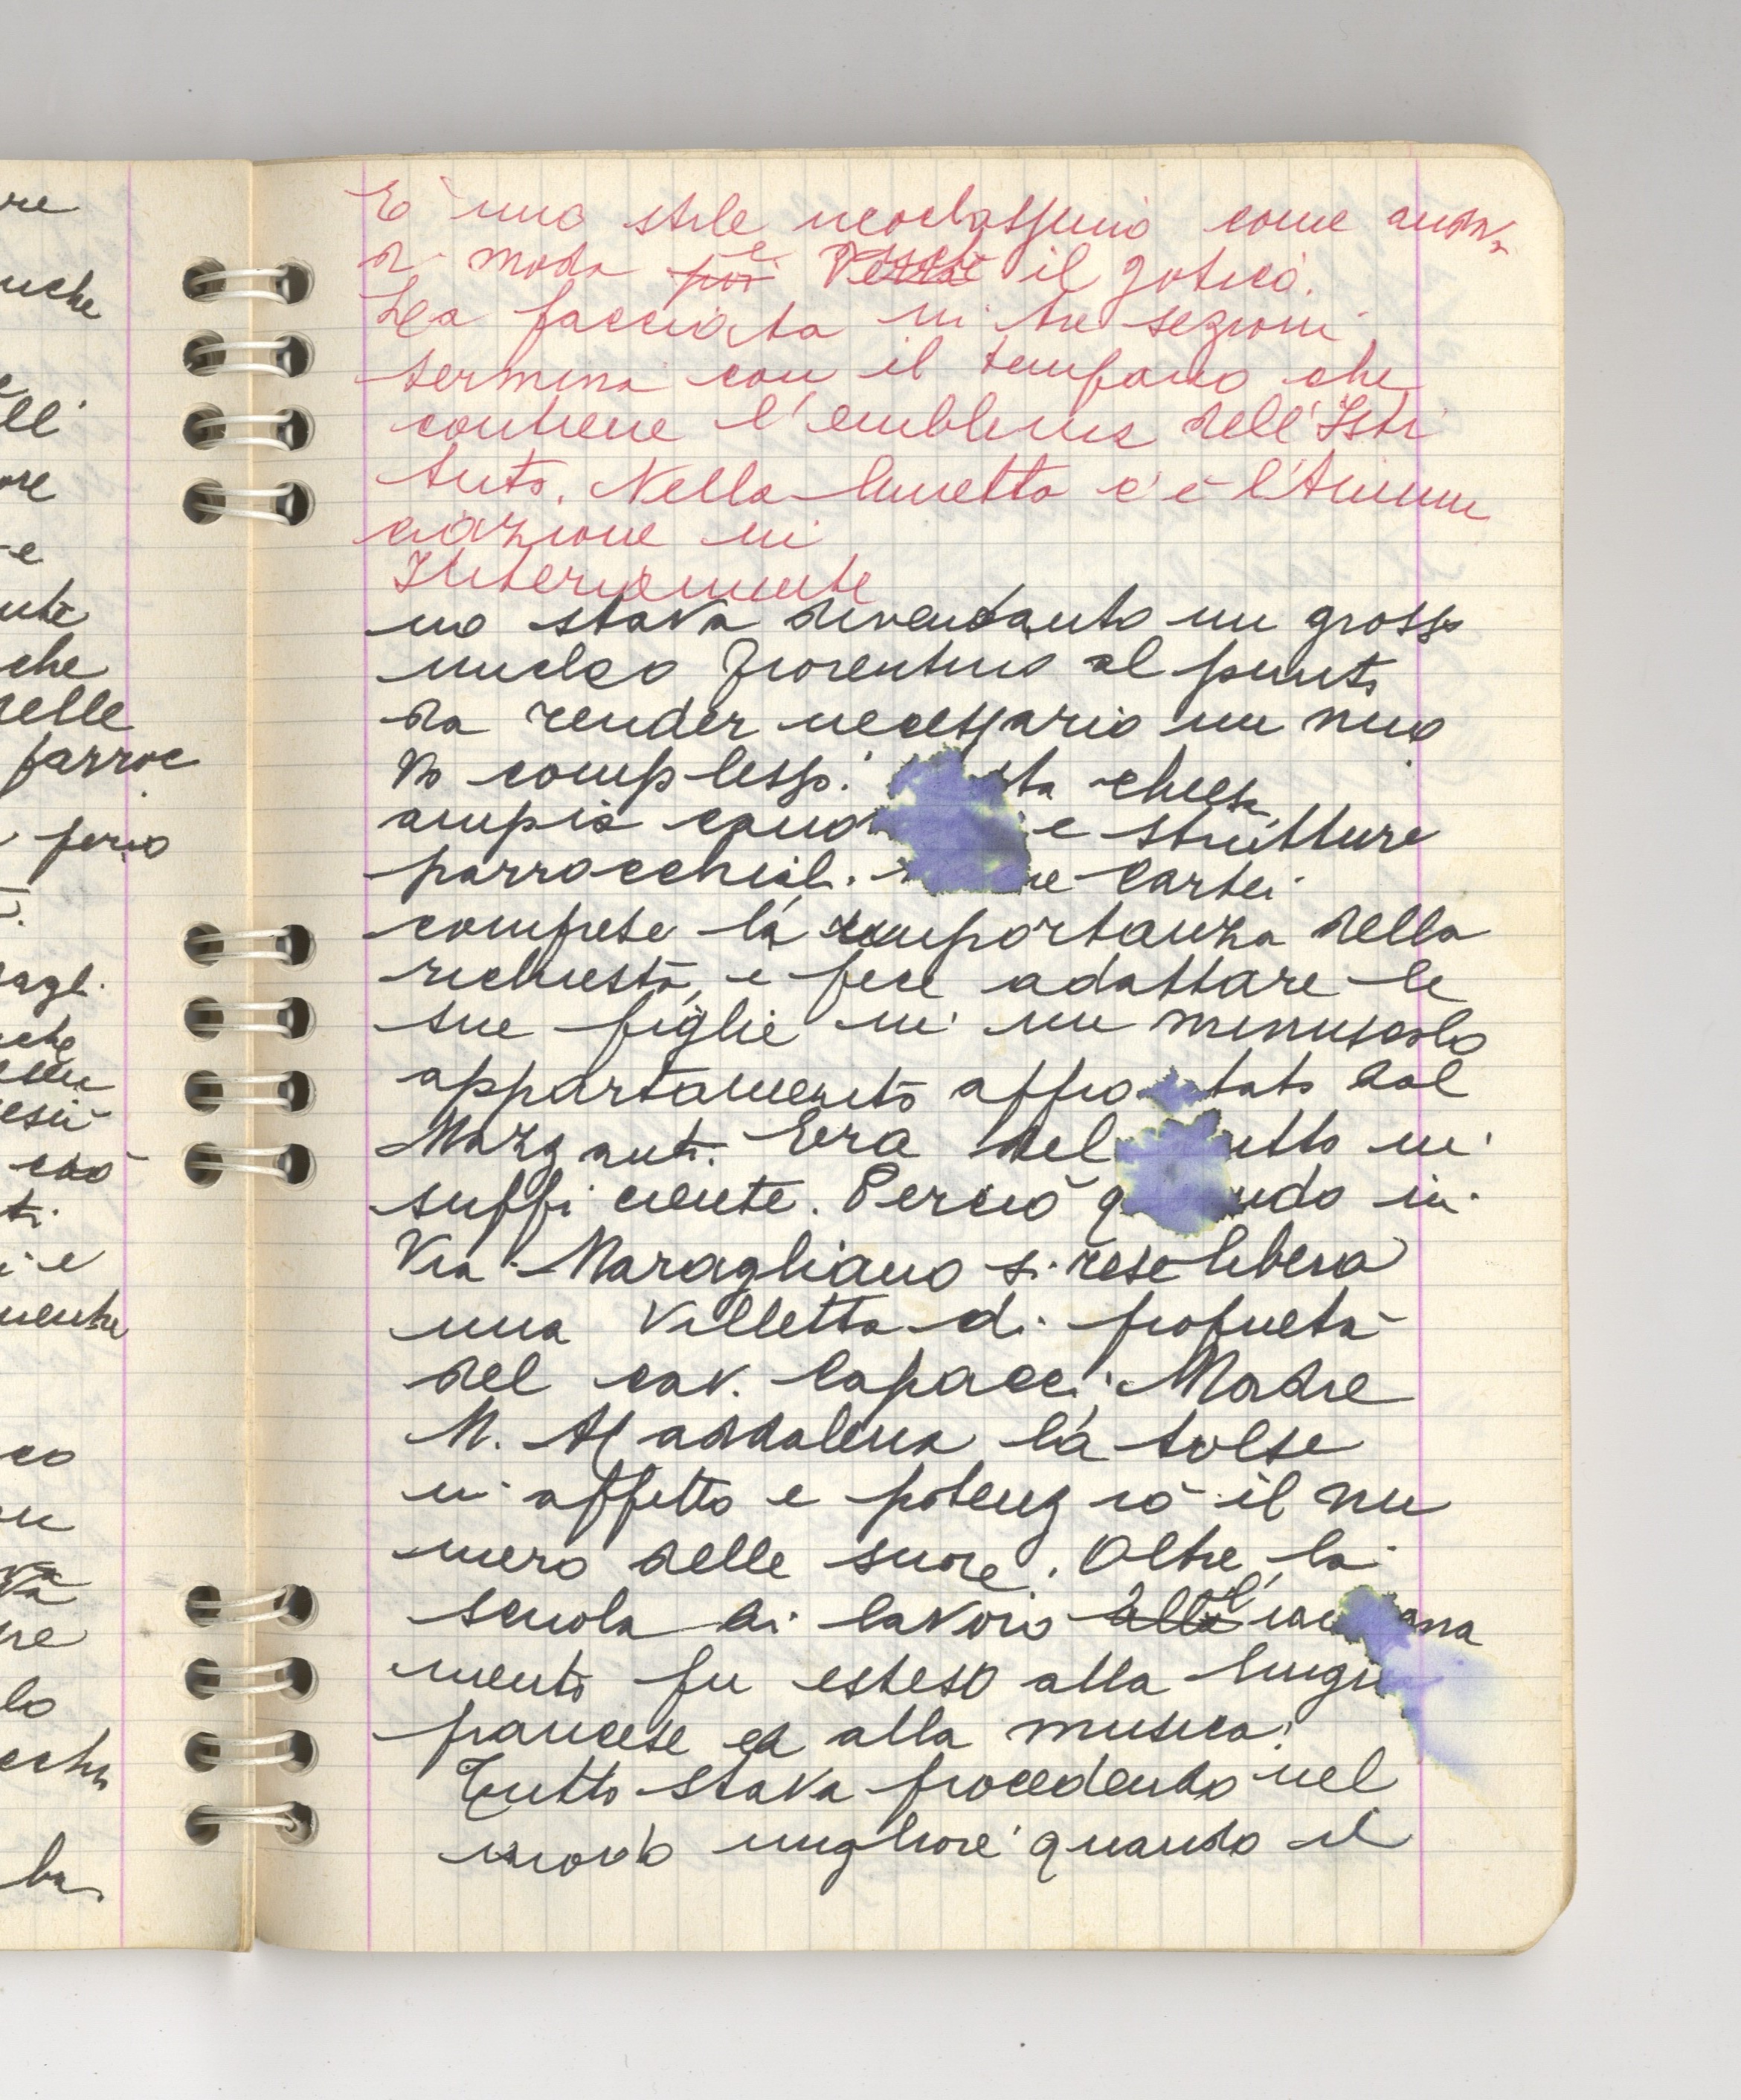 re
uche
ell'
ore
e
ute
che
delle
parroc
perio
agl.
che
esù
ciò
ti.
i e
mente
co
va
re
lo
ecchi
ba.
E' uno stile neoclassico come andava
di moda e il gotico.
La facciata in tre sezioni
termina con il timpano che
contiene l'emblema dell'Isti
tuto. Nella lunetta c'è l'Annun
ciazione in
Internamente
no stava diventando un grosso
nucleo fiorentino al punto
da render necessario un nuo
vo complesso: sta chiesa,
ampia e strutture
parrocchiali. Cartei
comprese la importanza della
richiesta, e fece adattare le
sue figlie in un minuscolo
appartamento affio tato dal
Mazzanti. Era del utto in
sufficiente. Perciò q ndo in
Via Maragliano si rese libera
una Villetta di proprietà
del cav. Capacci, Madre
M. Maddalena la tolse
in affitto e potenziò il nu
mero delle suore. Oltre la
scuola di lavoro alla l' na
mento fu esteso alla lingu
francese ed alla musica.
Tutto stava procedendo nel
modo migliore quando il